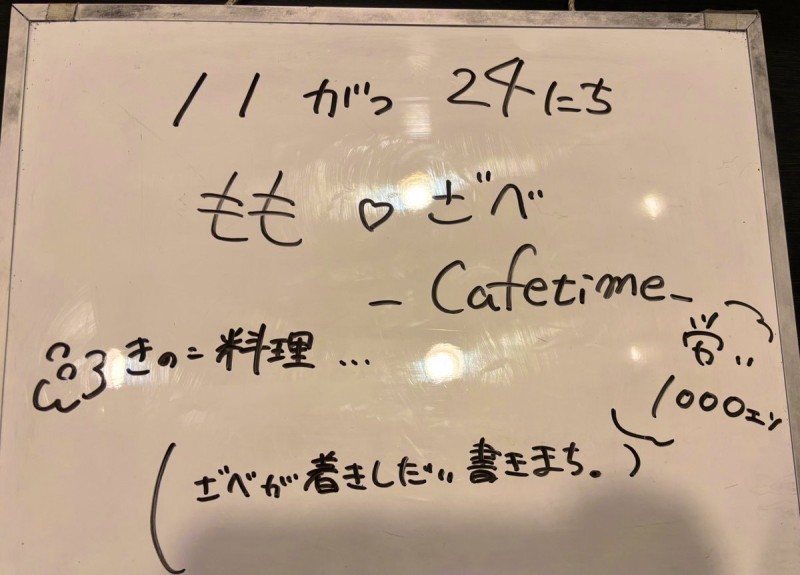 11がつ24にち
もも♡ざべ
- Cafetime -
きのこ料理…
1000エン
(ざべが着きしだい書きまち。)